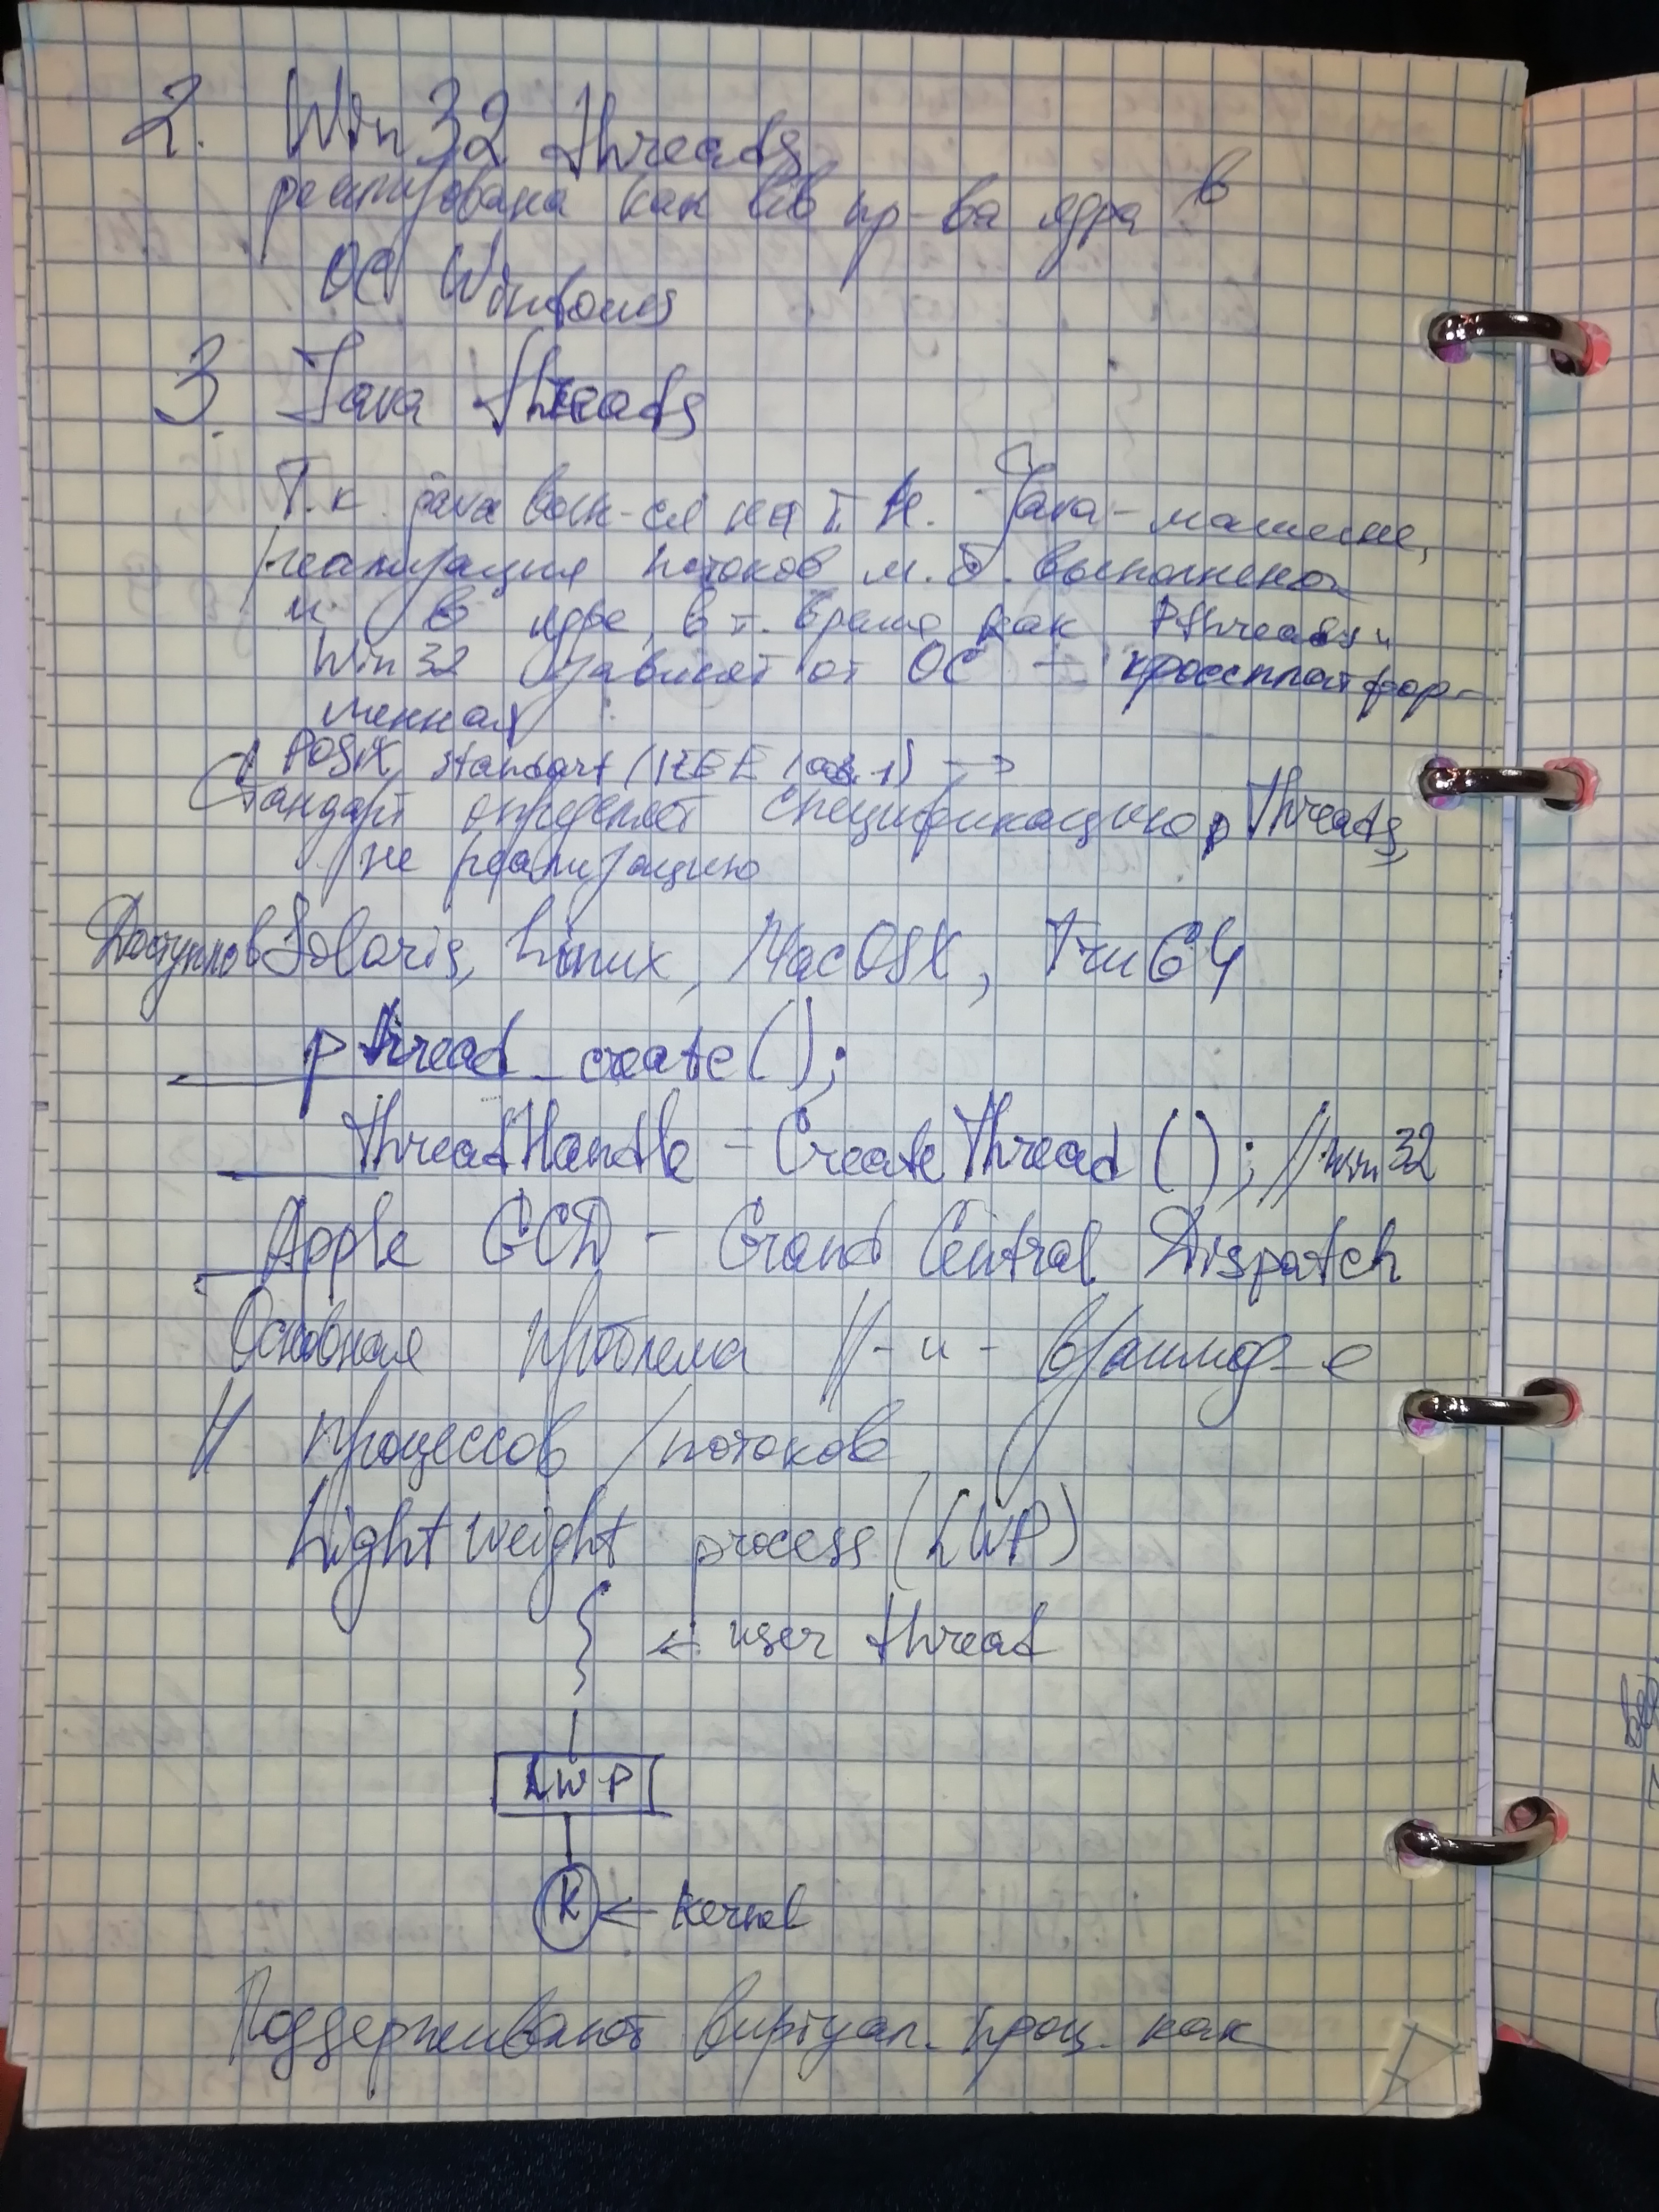 2. Win 32 threads
реализована как библ пр-ва ядра в
ОС Windows
3. Java threads
Т.к. java вып-ся на т.н. Java-машине,
реализация потоков м.б. выполнена
и в ядре, в т. время как Pthreads и
Win 32 зависят от ОС - кроссплатфор-
менная
POSIX standart (IEEE 1003.1) →
Стандарт определяет спецификацию pThreads,
не реализацию
Доступно в Solaris, Linux, Mac OSX, Tru64
pthread_create();
ThreadHandle = CreateThread(); //win 32
Apple GCD - Grand Central Dispatch
Основная проблема //-и - взаимод-е
// процессов/потоков
Lightweight process (LWP)
← user thread
LWP
K ← kernel
Поддерживают виртуал. проц. как